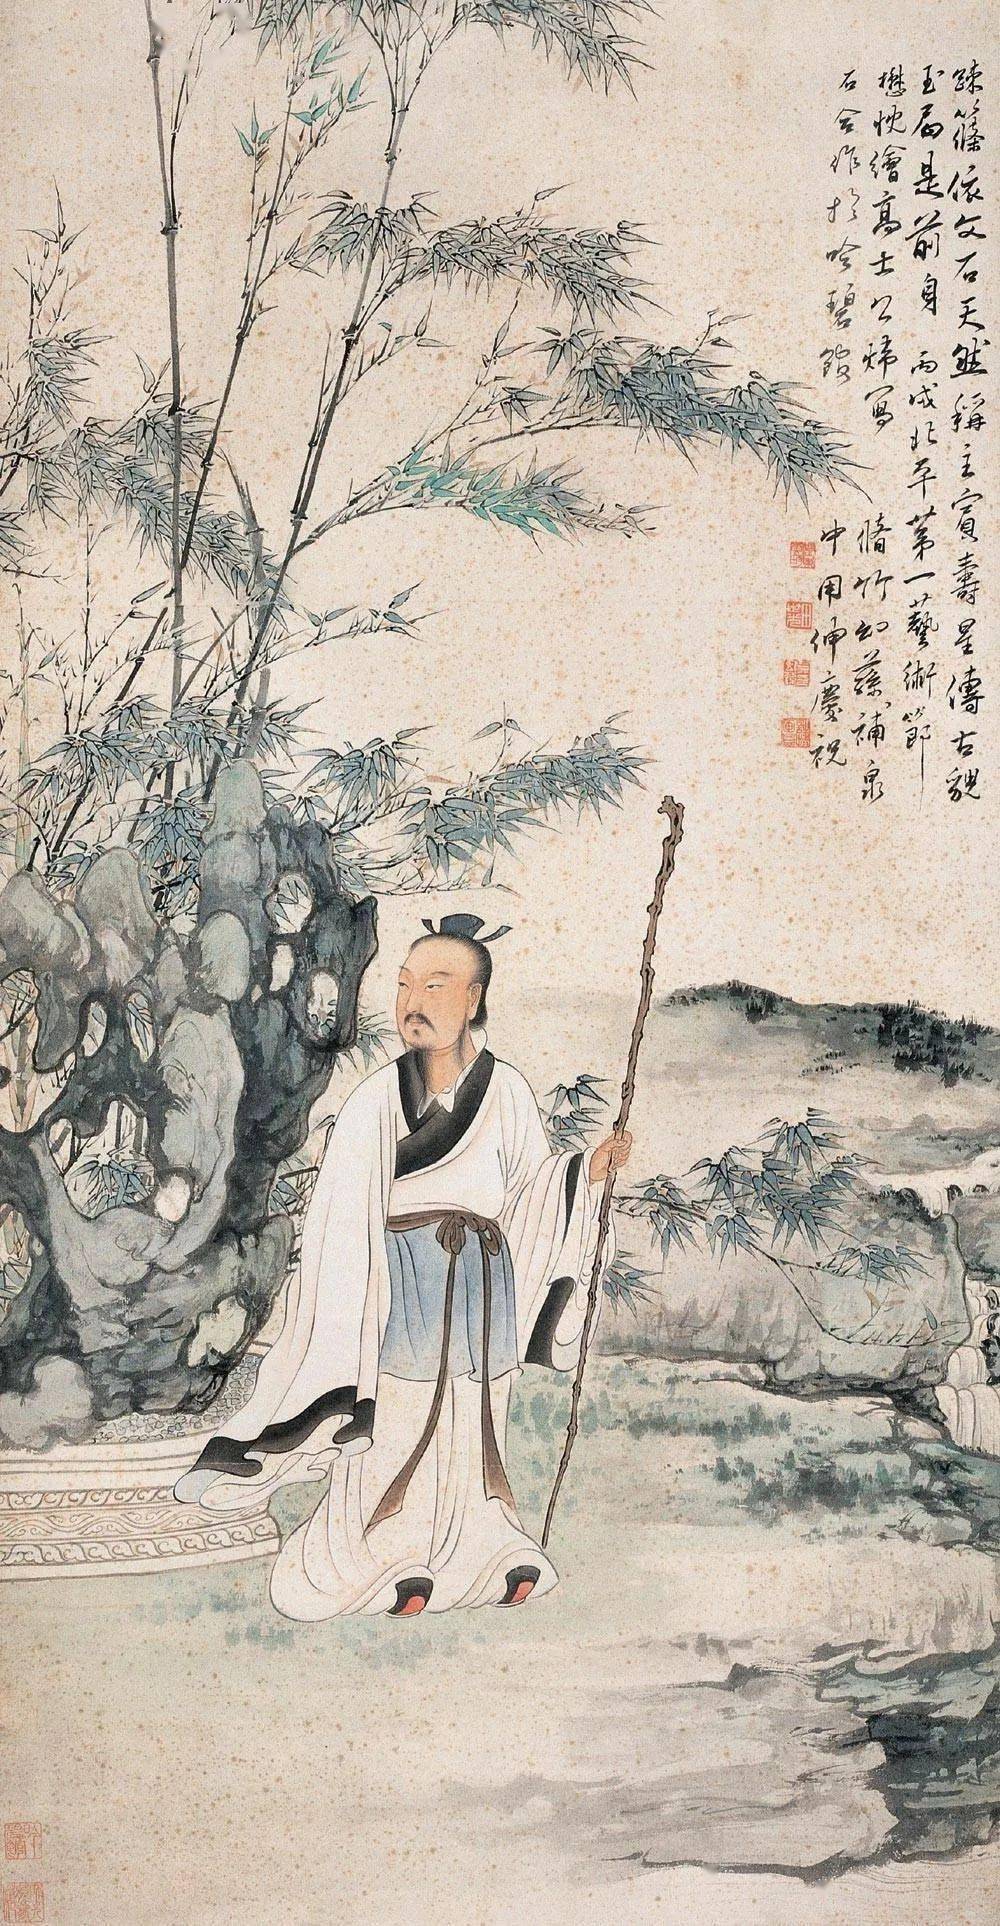 疎篠依文石天然稱主賓壽星傳古貌
玉局是前身丙戌北平第一藝術節
懋忱繪高士公寫脩竹幼蓀補泉
石合作於唫碧館中用伸慶祝